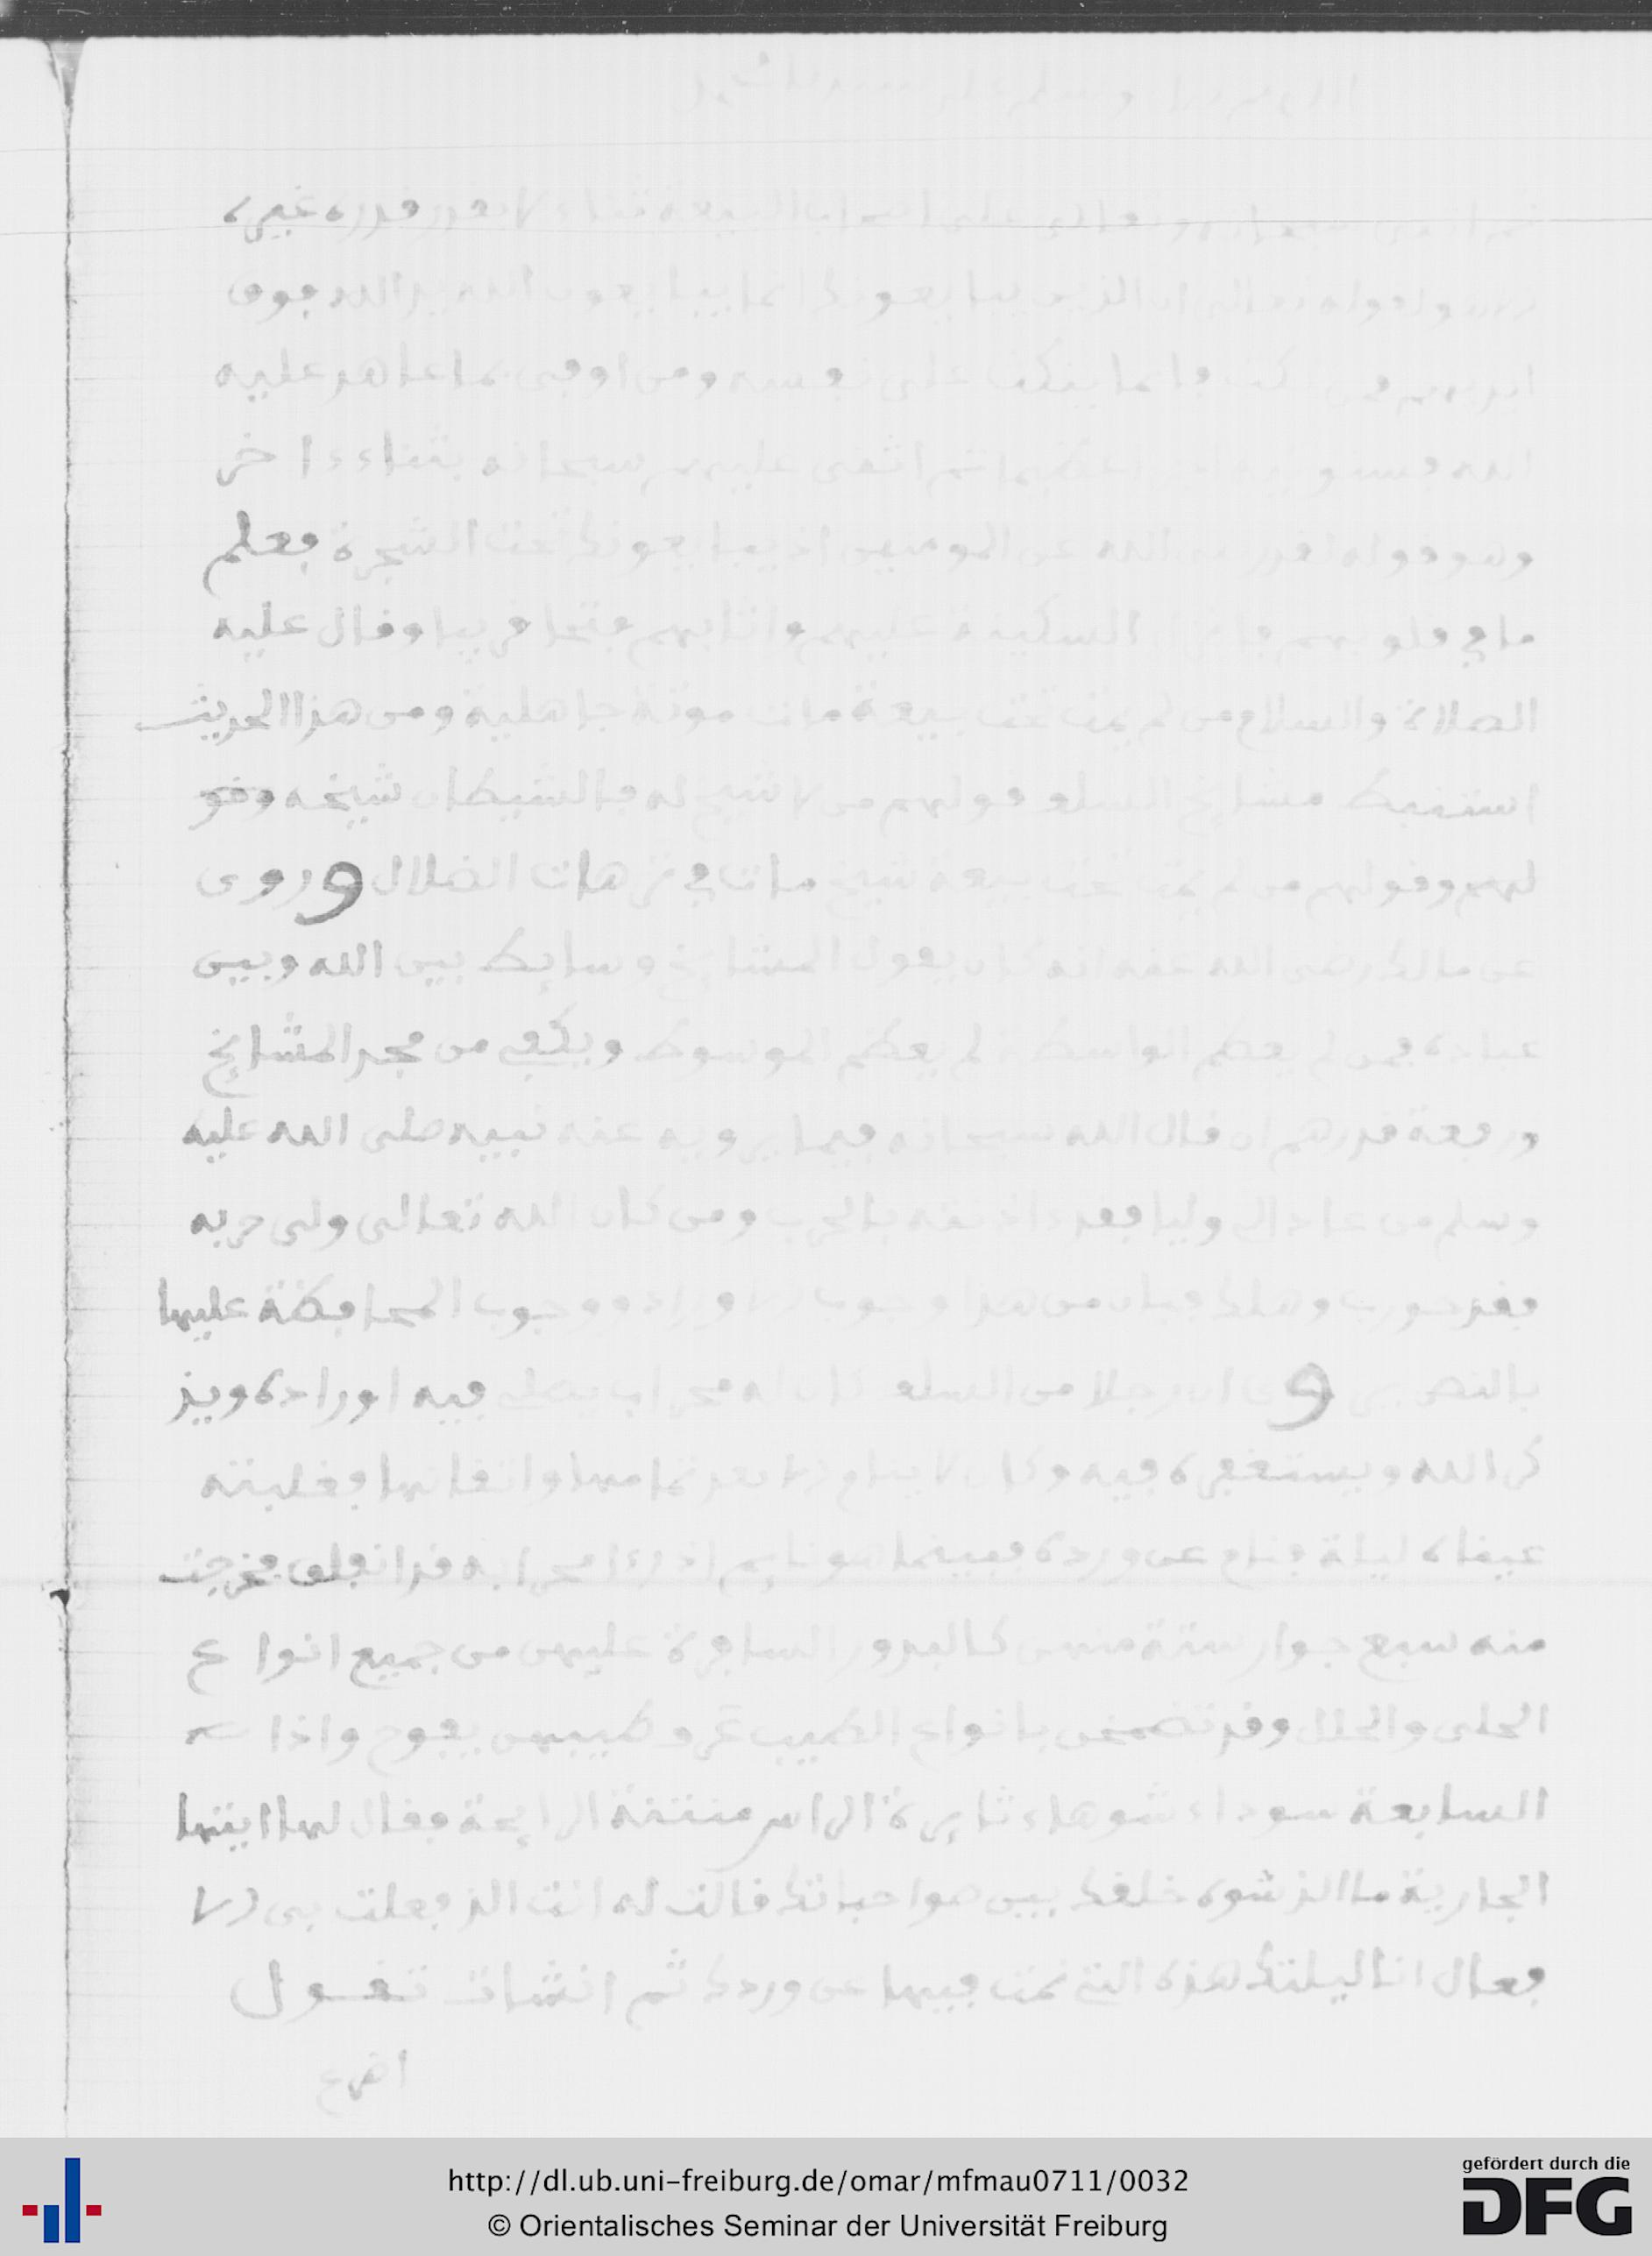 ثم اثنى سبحانه وتعالى على اصحاب البيعة ثناء لا يقدر قدره غيره
وقوله تعالى ان الذين يبايعونك انما يبايعون الله يد الله فوق
ايديهم فمن نكث فانما ينكث على نفسه ومن اوفى بما عاهد عليه
الله فسنوتيه اجرا عظيما ثم اثنى عليهم سبحانه بثناء ءاخر
وهو قوله لقد رضي الله عن المومنين اذ يبايعونك تحت الشجرة فعلم
ما في قلوبهم فانزل السكينة عليهم واثابهم فتحا قريبا وقال عليه
الصلاة والسلام من لم يمت تحت بيعة مات موتة جاهلية ومن هذا الحديث
استنبط مشايخ السلف قولهم من لا شيخ له فالشيطان شيخه وحق
لهم وقولهم من لم يمت تحت بيعة شيخ مات في ترهات الضلال وروى
عن مالك رضى الله عنه انه كان يقول المشايخ وسايط بين الله وبين
عباده فمن لم يعظم الواسط لم يعظم الموسوط ويكفي من مجد المشايخ
ورفعة قدرهم ان قال الله سبحانه فيما يرويه عنه نبيه صلى الله عليه
وسلم من عادا لي وليا فقد ءاذنته بالحرب ومن كان الله تعالى ولى حربه
فقد حورب وهلك فبان من هذا وجوب الاوراد ووجوب المحافظة عليها
بالنص وروي ان رجلا من السلف كان له محراب يصلي فيه اوراده ويذ
كر الله ويستغفره فيه وكان لا ينام الا بعد تمامها واتقانها فغلبته
عيناه ليلة فنام عن ورده فبينما هو نايم اذ رءا محرابه قد انفلق فخرجت
منه سبع جوار ستة منهن كالبدور السافرة عليهن من جميع انواع
الحلى والحلل وقد تضمخن بانواع الطيب عرو طيبهن يفوح واذا
السابعة سوداء شوهاء ثايرة الراس منتنة الرايحة فقال لها ايتها
الجارية ما الذ شوه خلقك بين صواحباتك فالت له انت الذ فعلت بى الا
فعال انا ليلتك هذه التي نمت فيها عن وردك ثم انشات تقول